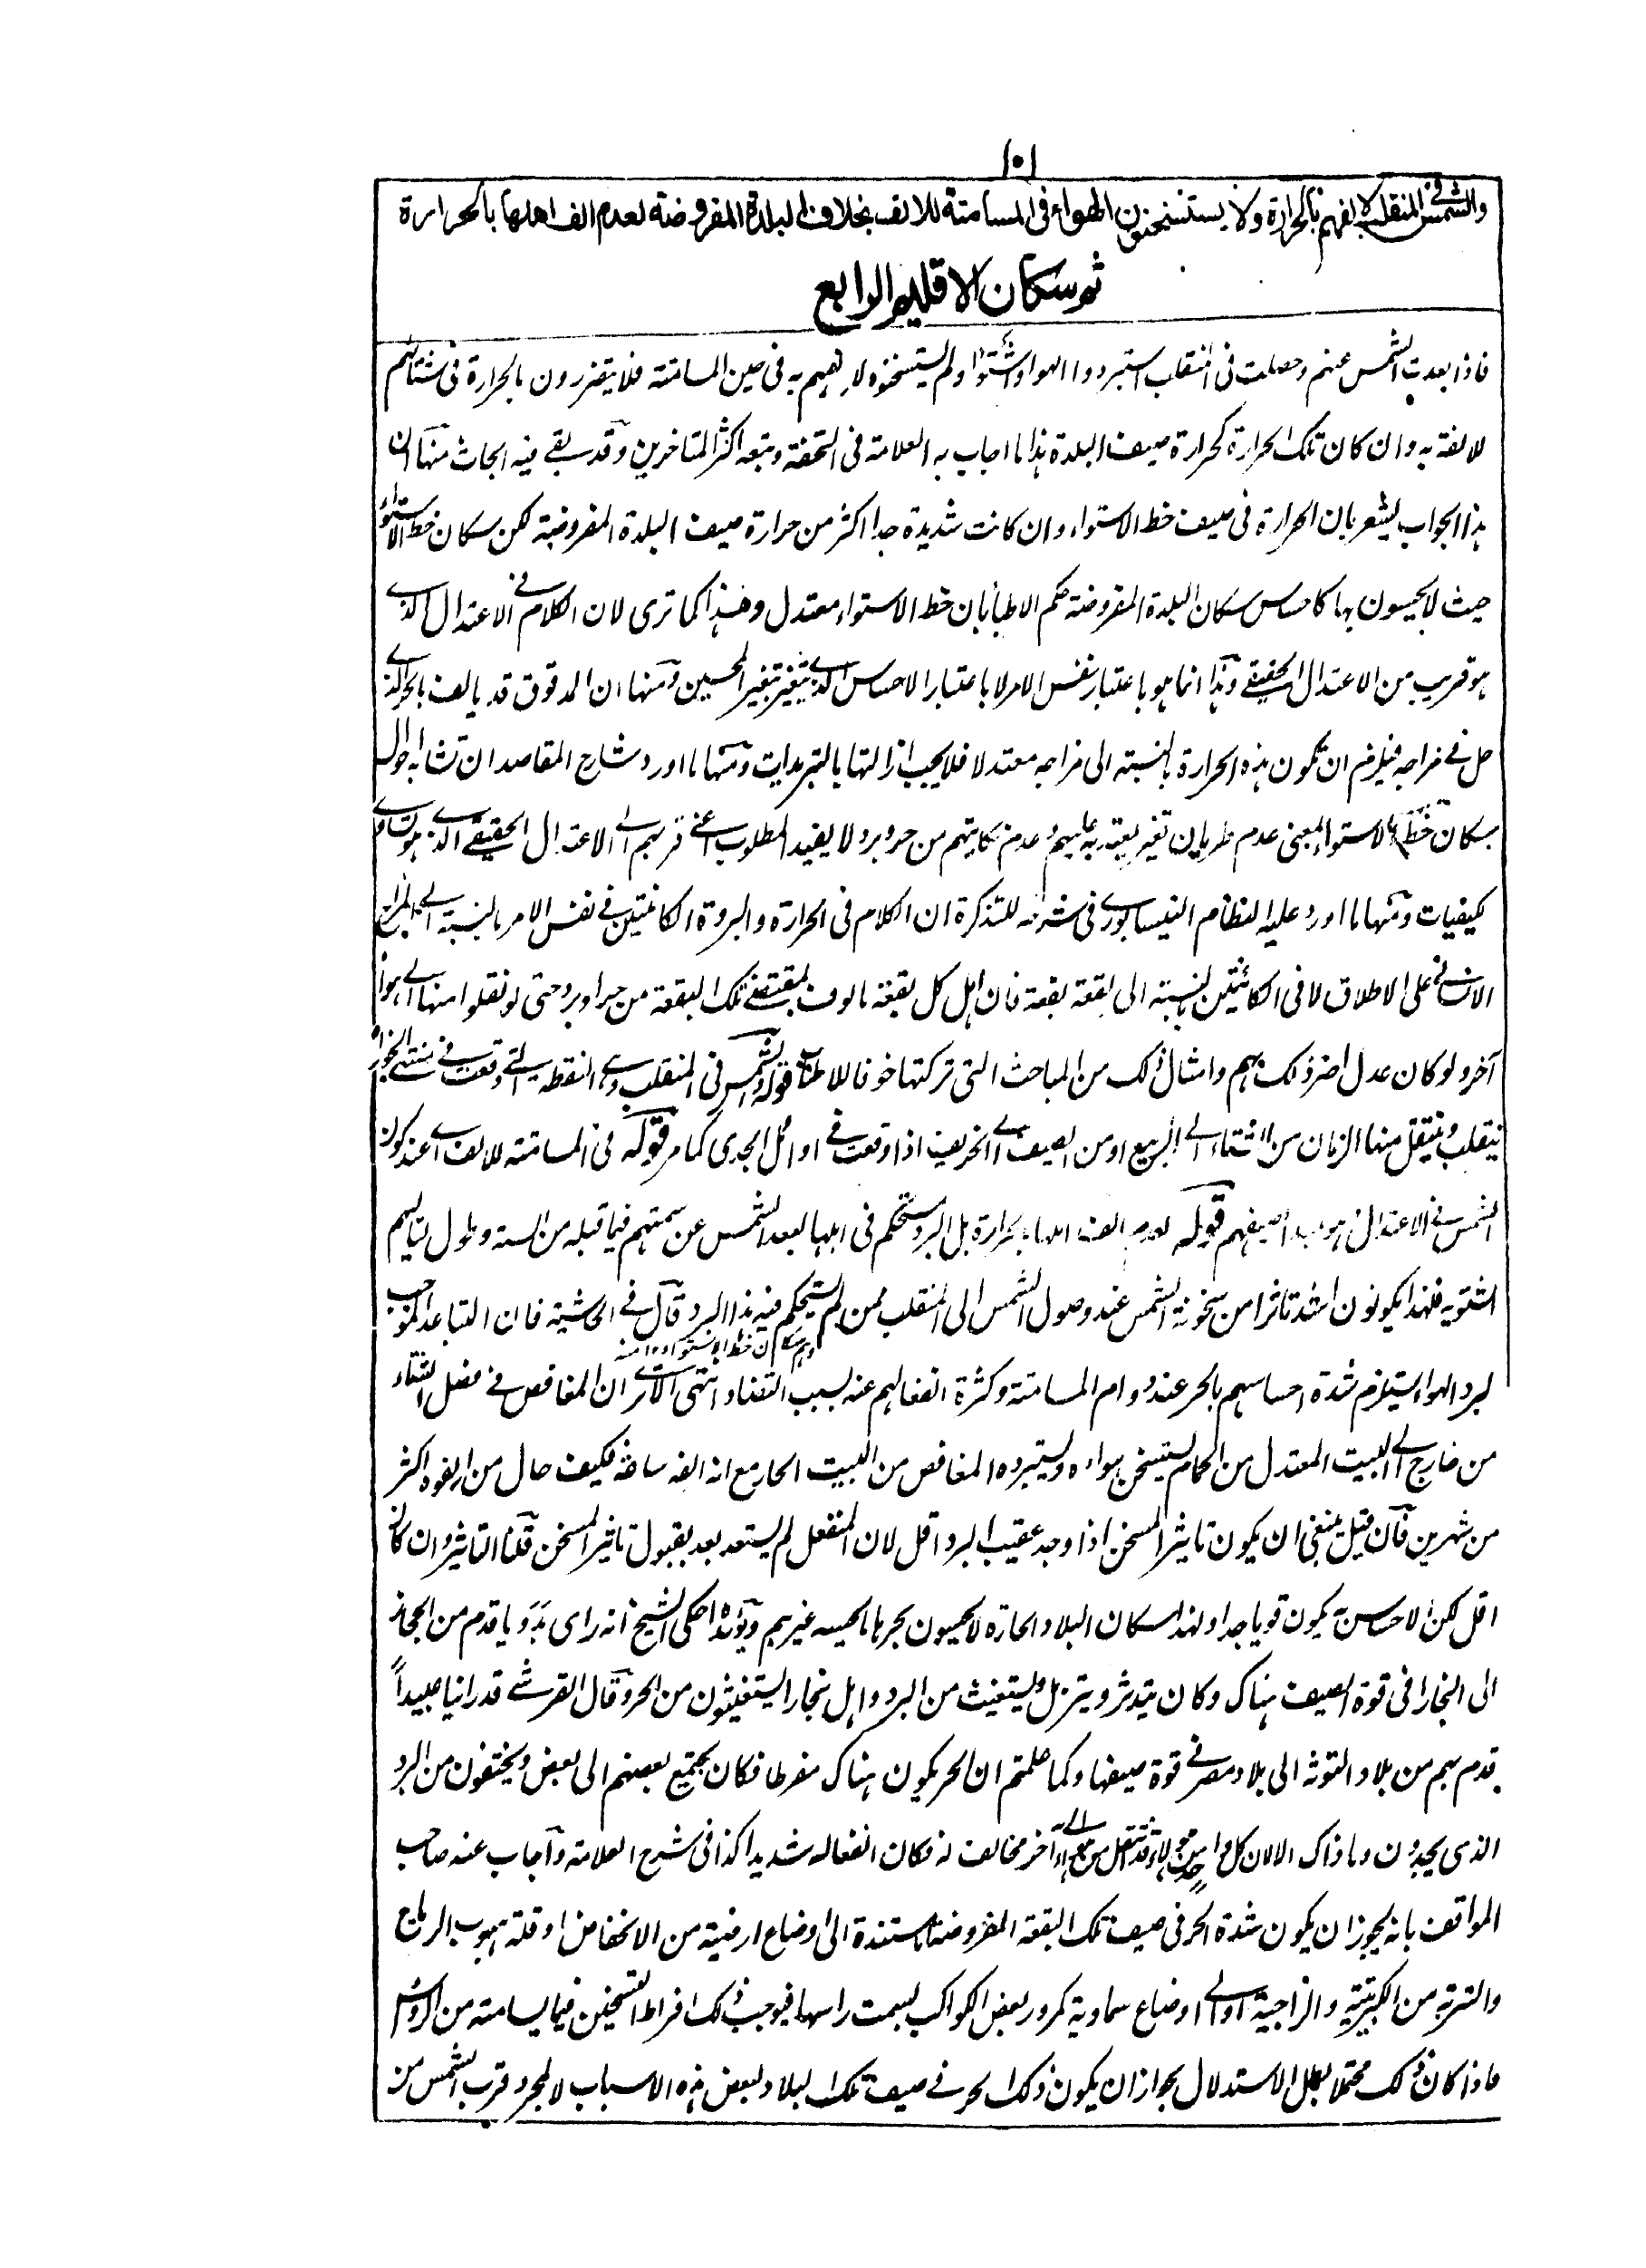 ١٠١
والشمس في المنقلب لالفهم بالحرارة ولا يستسخنون الهواء في المسامتة للالف بخلاف البلدة المفروضة لعدم الف اهلها بالحرارة
ثم سكان الاقليم الرابع
فاذا بعدت الشمس عنهم وحصلت فى المنقلب استبردوا الهواء وشتوا ولم يستسخنوه لالفهم به فى حين المسامتة فلا يتضررون بالحرارة فى شتائهم
لالفته به وان كان تلك الحرارة كحرارة صيف البلدة هذا ما اجاب به العلامة فى التحفة وتبعه اكثر المتاخرين وقد بقے فيه ابحاث منها ان
هذا الجواب يشعر بان الحرارة فى صيف خط الاستواء وان كانت شديدة جدا اكثر من حرارة صيف البلدة المفروضة لكن سكان خط الاستواء
حيث لا يحسون بها كاحساس سكان البلدة المفروضة حكم الاطباء بان خط الاستواء معتدل وهذا كما ترى لان الكلام فے الاعتدال الذے
هو قريب من الاعتدال الحقيقے وهذا انما هو باعتبار نفس الامر لا باعتبار الاحساس الذے يتغير بتغير المحسين ومنها ان المدقوق قد يالف بالحرارة
حل فے مزاجه فيلزم ان تكون هذه الحرارة بالنسبة الى مزاجه معتدلا فلا يجب ازالتها بالتبريدات ومنها ما اورد شارح المقاصد ان تشابه احوال
سكان خط الاستواء بمعنى عدم طريان تغير يعتد به عليهم وعدم نكايتهم من حر وبرد لا يفيد المطلوب اعنے قربهم الے الاعتدال الحقيقے الذے هو تساوے
كيفيات ومنها ما اورد عليه النظام النيسابورے فى شرحه للتذكرة ان الكلام فى الحرارة والبرودة الكائنتين فے نفس الامر بالنسبة الے المزاج
الانسانے على الاطلاق لا فى الكائنتين بالنسبة الى بقعة بقعة فان اهل كل بقعة مالوف بمقتضے تلك البقعة من حر او برد حتى لو نقلوا منها الے هواء
آخر ولو كان عدل اضر ذلك بهم وامثال ذلك من المباحث التى تركتها خوفا للاطناب قوله والشمس فى المنقلب وهے النقطة التے وقعت فے منتهے الجوزاء
ينقلب وينتقل منها الزمان من الشتاء الے الربيع او من الصيف الے الخريف اذا وقعت فے اوائل الجدى كما مر قوله فى المسامتة للالف اے عند كون
الشمس فے الاعتدال هو مبدأ صيفهم قوله لعدم الف اهلها بالحرارة بل البرد مستحكم فى اهلها لبعد الشمس عن سمتهم فيما قبله من السنة وطول لياليهم
الشتوية فلهذا يكونون اشد تاثرا من سخونة الشمس عند وصول الشمس الى المنقلب ممن لم يستحكم فيه هذا البرد قال فے الحاشية فان التباعد الموجب
وهم سكان خط الاستواء ١٢ منه
لبرد الهواء يستلزم شدة احساسهم بالحر عند دوام المسامتة وكثرة انفعالهم عنه بسبب التضاد انتهى الا ترے ان المغافص فے فصل الشتاء
من خارج الے البيت المعتدل من الحمام يستسخن هواءه ويستبرده المغافص من البيت الحار مع انه الفه ساعة فكيف حال من الفوه اكثر
من شهرين فان قيل ينبغى ان يكون تاثير المسخن اذا وجد عقيب البرد اقل لان المنفعل لم يستعد بعد بقبول تاثير المسخن قلنا التاثير وان كان
اقل لكن الاحساس به يكون قويا جدا ولهذا سكان البلاد الحارة لا يحسون بحرها ما يحسه غيرهم ويؤيده ما حكى الشيخ انه راى بدويا قدم من الحجاز
الى البخارا فى قوة الصيف هناك وكان يتدثر ويتزمل ويستغيث من البرد واهل بخارا يستغيثون من الحر وقال القرشے قد راينا عبيداً
قدم بهم من بلاد النوبة الى بلاد مصر فے قوة صيفها وكما علمتم ان الحر يكون هناك مفرطا فكان يجتمع بعضهم الى بعض ويختفون من البرد
الذى يجدون وما ذاك الا لان كل واحد من هؤلاء قد انتقل من هواء الے آخر مخالف له فكان انفعاله شديدا كذا فى شرح العلامة واجاب عنه صاحب
المواقف بانه يجوز ان يكون شدة الحر فى صيف تلك البقعة المفروضة مستندة الى اوضاع ارضية من الانخفاض او قلة هبوب الرياح
والتربة من الكبريتية والزاجية او الے اوضاع سماوية كمرور بعض الكواكب بسمت راسها فيوجب ذلك افراط التسخين فيما يسامته من الرؤس
واذا كان ذلك محتملا بطل الاستدلال بجواز ان يكون ذلك الحر فے صيف تلك البلاد لبعض هذه الاسباب لا لمجرد قرب الشمس من